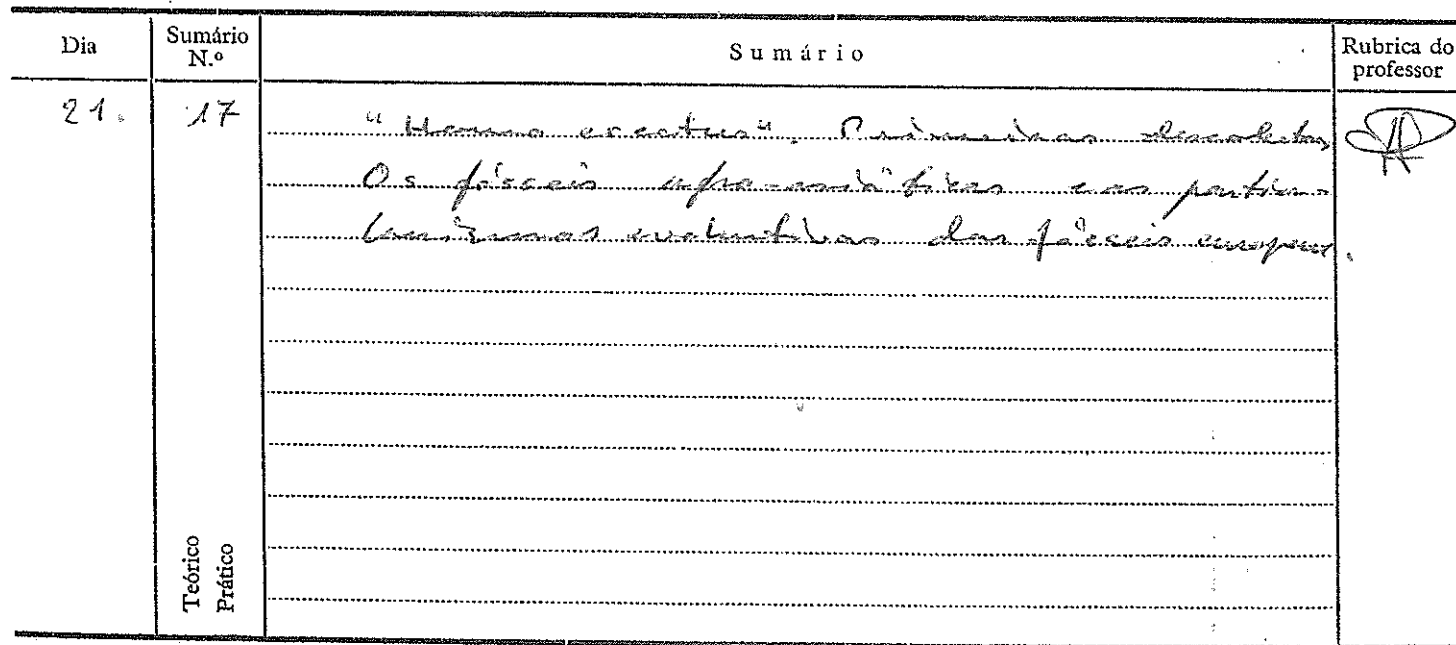 Dia
Sumário N.º
Sumário
Rubrica do professor
21.
17
"Homo erectus". Primeiras descobertas
Os fósseis afro-asiáticos e as particu-
larismos evolutivos dos fósseis europeus.
Teórico
Prático